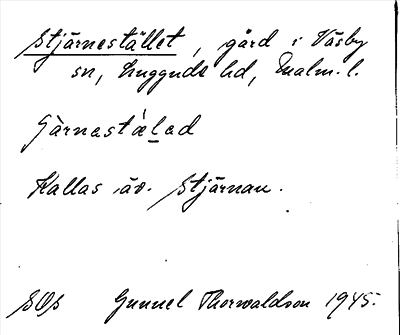 Stjärnestället, gård i Väsby
sn, Luggude hd, Malm. l.
Kallas äv. Stjärnan.
SOs Gunnel Thorwaldson 1945.